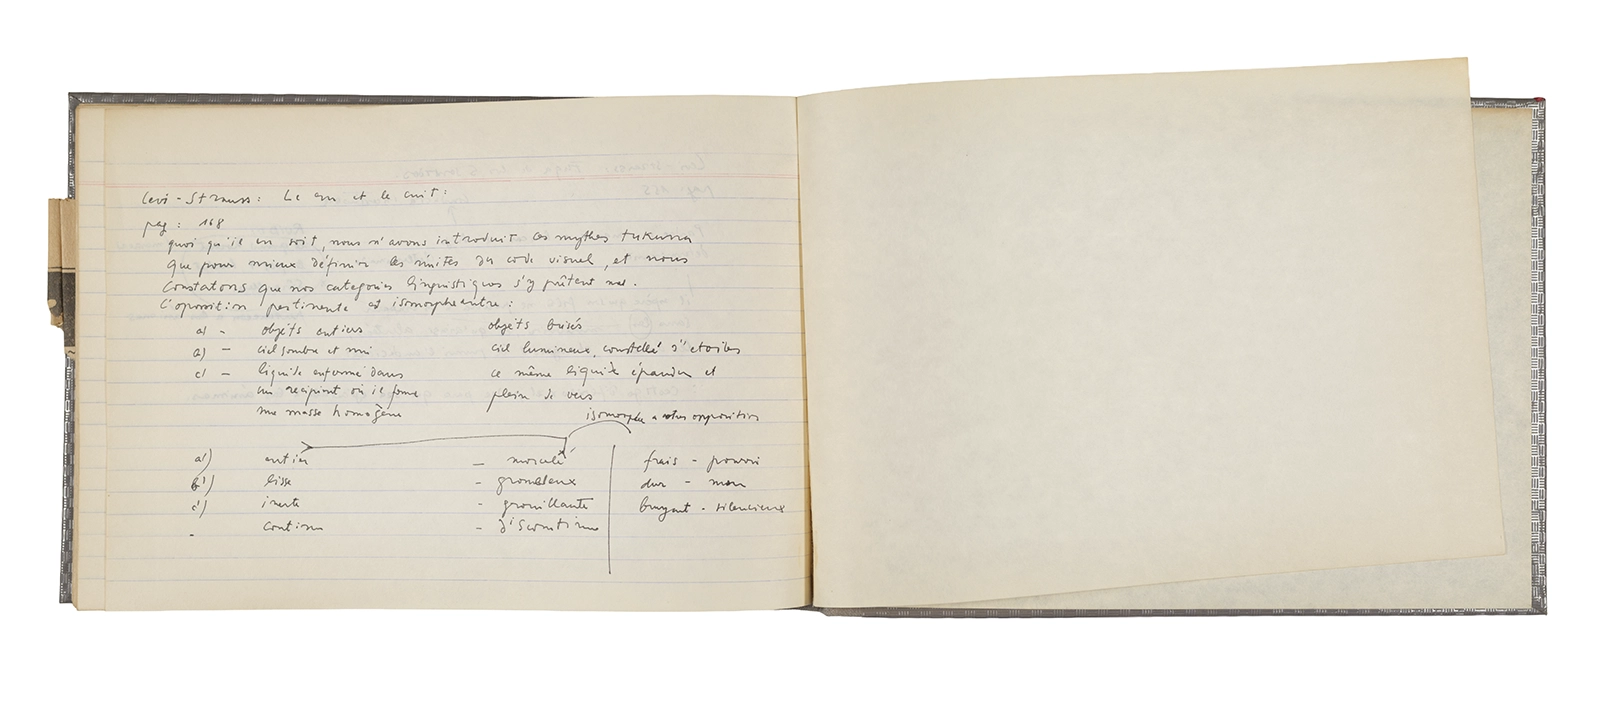 Levi-Strauss: Le cru et le cuit:
pag: 168
quoi qu'il en soit, nous n'avons introduit ces mythes tukuna
que pour mieux définir les unités du code visuel, et nous
constatons que nos categories linguistiques s'y prêtent mal.
L'opposition pertinente est isomorphe entre:
a) - objets entiers objets brisés
a) - ciel sombre et uni ciel lumineux, constellé d'etoiles
c) - liquide enfermé dans ce même liquide épandu et
un recipient où il forme plein de vers
une masse homogène
isomorphe a otras opposition
a') entier - morcelé frais - pourri
b') lisse - grumeleux dur - mou
c') inerte - grouillante bruyant - silencieux
. continu - discontinu